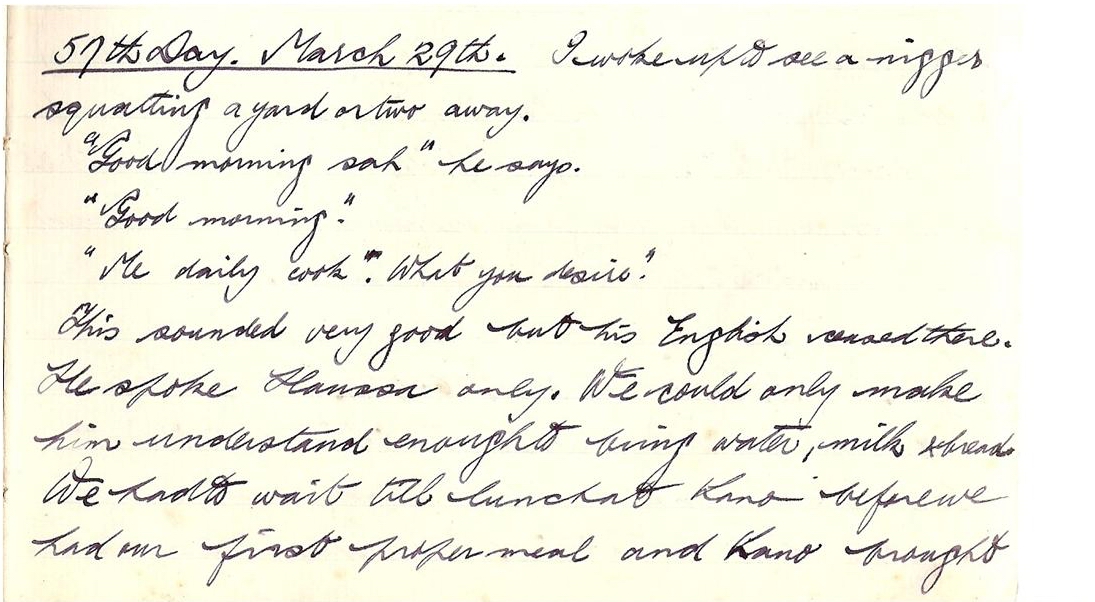 57th Day. March 29th. I woke up to see a nigger
squatting a yard or two away.
"Good morning sah" he says.
"Good morning".
"Me daily cook". What you desire".
This sounded very good but his English ceased there.
He spoke Haussa only. We could only make
him understand enough to bring water, milk & bread.
We had to wait till lunch at Kano before we
had our first proper meal and Kano brought